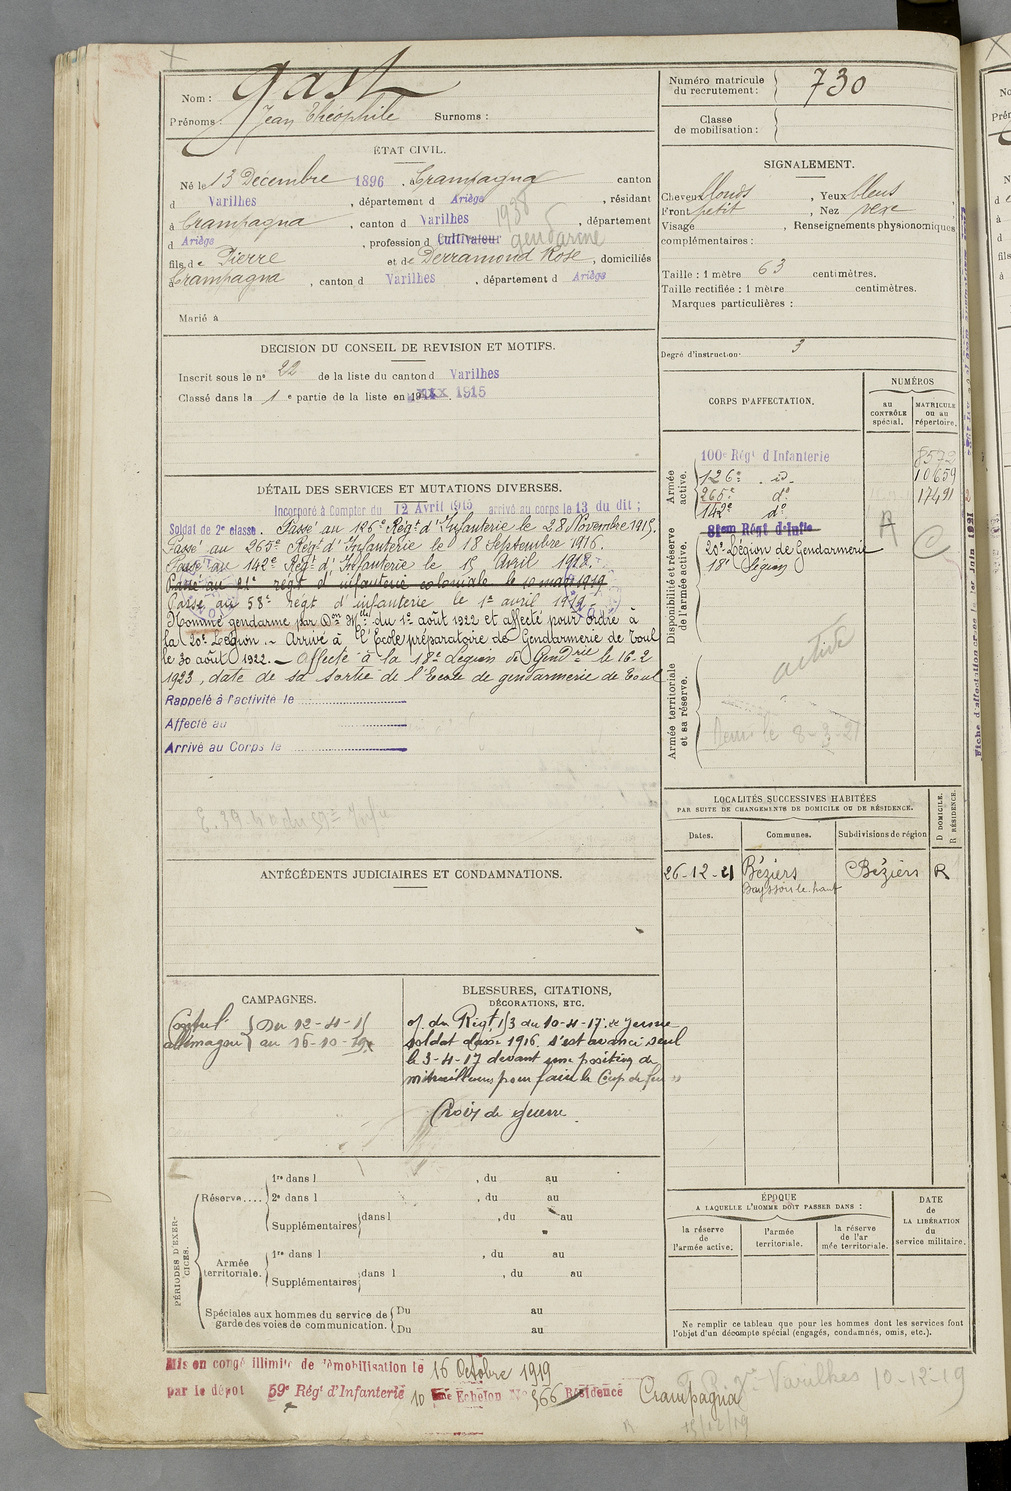 Nom : Gast
Prénoms : Jean Théophile Surnoms :
Numéro matricule du recrutement : 730
Classe de mobilisation :
ÉTAT CIVIL.
Né le 13 Décembre 1896, Crampagna canton
d Varilhes, département d Ariège, résidant
à Crampagna, canton d Varilhes 1938, département
d Ariège, profession d Cultivateur gendarme
fils de Pierre et de Derramond Rose, domiciliés
à Crampagna, canton d Varilhes, département d Ariège
Marié à
SIGNALEMENT.
Cheveux blonds, Yeux bleus
Front petit, Nez vexe
Visage , Renseignements physionomiques
complémentaires :
Taille : 1 mètre 63 centimètres.
Taille rectifiée : 1 mètre centimètres.
Marques particulières :
Degré d'instruction : 3
DECISION DU CONSEIL DE REVISION ET MOTIFS.
Inscrit sous le nº 22 de la liste du canton d Varilhes
Classé dans la 1 e partie de la liste en 1915
DÉTAIL DES SERVICES ET MUTATIONS DIVERSES.
Incorporé à Compter du 12 Avril 1915 arrivé au corps le 13 du dit ;
Soldat de 2e classe. Passé au 126e Régt d'Infanterie le 28 Novembre 1915.
Passé au 265e Régt d'Infanterie le 18 Septembre 1916.
Passé au 142e Régt d'Infanterie le 15 Avril 1918.
Passé au 21e régt d'infanterie coloniale le 10 mars 1919
Passé au 58e régt d'infanterie le 1er avril 1919
Nommé gendarme par Don Mlle du 1er août 1922 et affecté pour ordre à
la 20e Légion. - Arrivé à l'École préparatoire de Gendarmerie de Toul
le 30 août 1922. - Affecté à la 18e Légion de Gendrie le 16-2
1923, date de sa sortie de l'Ecole de gendarmerie de Toul
Rappelé à l'activité le
Affecté au
Arrivé au Corps le
CORPS D'AFFECTATION.
NUMÉROS
au CONTRÔLE spécial.
MATRICULE ou au répertoire.
Armée active.
100e Régt d'Infanterie 8572
126e d° 10659
265e d° 17491
142e d°
Disponibilité et réserve de l'armée active.
81eme Régt d'Infie
20e Légion de Gendarmerie
18e Légion
A
C
Armée territoriale et sa réserve.
active
LOCALITÉS SUCCESSIVES HABITÉES
PAR SUITE DE CHANGEMENTS DE DOMICILE OU DE RÉSIDENCE.
Dates. Communes. Subdivisions de région D DOMICILE. R RÉSIDENCE.
26-12-21 Béziers Béziers R
ANTÉCÉDENTS JUDICIAIRES ET CONDAMNATIONS.
CAMPAGNES.
Contre l'Allemagne { du 12-4-15
au 16-10-19
BLESSURES, CITATIONS, DÉCORATIONS, ETC.
O/ du Régt 153 du 10-4-17 : « Jeune
soldat classe 1916. s'est avancé seul
le 3-4-17 devant une position de
mitrailleuses pour faire le Coup de feu »
Croix de guerre.
PÉRIODES D'EXERCICES.
Réserve....
1re dans l , du au
2e dans l , du au
Supplémentaires dans l , du au
Armée territoriale.
1re dans l , du au
Supplémentaires dans l , du au
Spéciales aux hommes du service de garde des voies de communication.
Du au
Du au
ÉPOQUE
A LAQUELLE L'HOMME DOIT PASSER DANS :
la réserve de l'armée active.
l'armée territoriale.
la réserve de l'armée territoriale.
DATE de LA LIBÉRATION du service militaire.
Ne remplir ce tableau que pour les hommes dont les services font
l'objet d'un décompte spécial (engagés, condamnés, omis, etc.).
Mis en congé illimité de démobilisation le 16 Octobre 1919
par le dépôt 59e Régt d'Infanterie 10 eme Echelon Nº 566 Résidence Crampagna
Varilhes 10-12-19